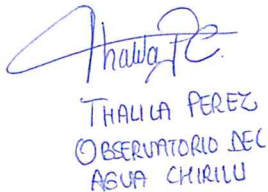 Thalila P.C.
THALILA PEREZ
OBSERVATORIO DEL
AGUA CHIRILU